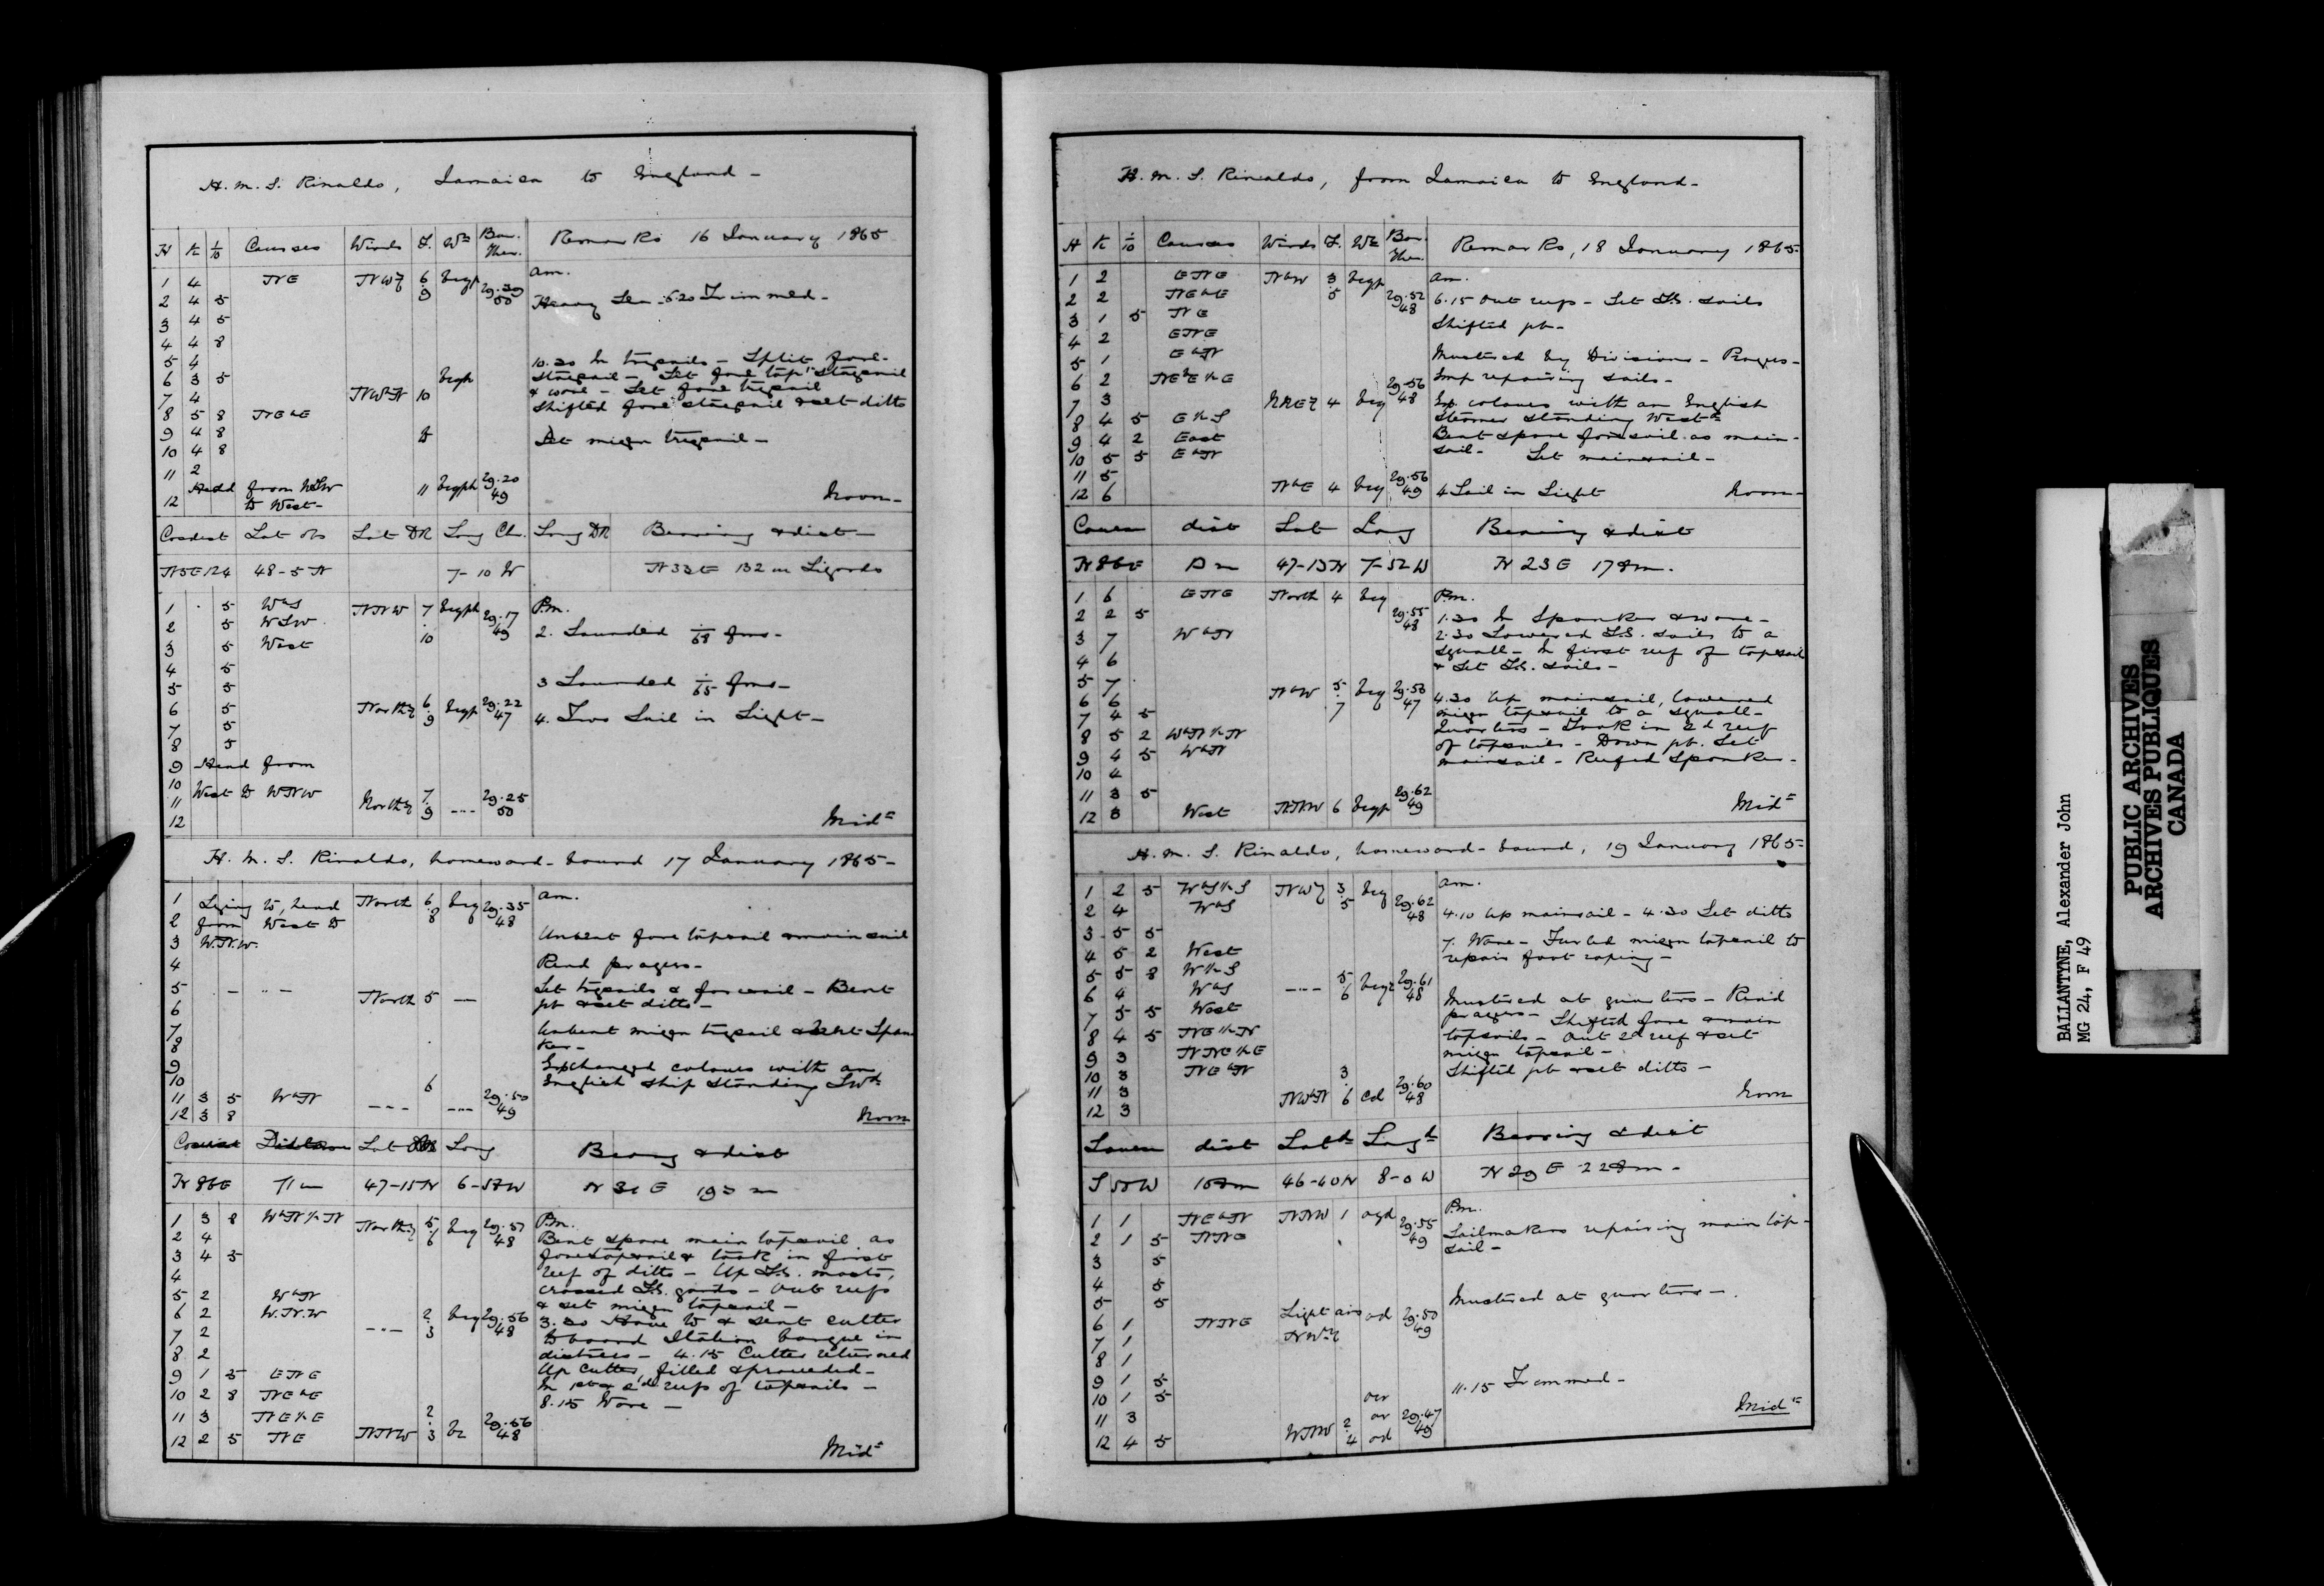 H. M. S. Rinaldo, Jamaica to England -
H K 1/10 Courses Winds F. Wr Bar. Ther. Remarks 16 January 1865
1 4 NE NWy 6.9 bcqp 29.39 50 am.
2 4 5 Heavy Sea - 6.20 Trimmed -
3 4 5
4 4 8
5 4 10.30 In trysails - Split fore-
6 3 5 bcqh staysail - Set fore topt staysail
7 4 NWbN 10 & wore - Set fore trysail
8 5 8 NEbE Shifted fore staysail & set ditto
9 4 8 to Set mizen trysail -
10 4 8
11 2
12 Head from WSW to West - 11 bcqph 29.20 49 Noon -
Co & dist Lat obs Lat DR Long Ch. Long DR Bearing & dist -
N5E 124 48-5 N 7-10 W N33E 132 m Lizards
1 5 WbS NNW 7.10 bcqph 29.17 49 P.m.
2 5 WSW 2. Sounded 68 fms -
3 5 West
4 5
5 5 3 Sounded 65 fms -
6 5 Northy 6.9 bcqp 29.22 47
7 5 4. Two Sail in Sight -
8 5
9 Head from
10 West to WNW
11 Northy 7.9 --- 29.25 50
12 Midt
H. M. S. Rinaldo, homeward-bound 17 January 1865 -
1 Lying to, head North 6.8 bcq 29.35 48 am.
2 from West to
3 W.N.W. Unbent fore topsail & mainsail
4 Read prayers -
5 - -- - Set trysails & foresail - Bent
6 North 5 -- jib & set ditto -
7 Unbent mizen trysail & bent Span
8 ker -
9 Exchanged colours with an
10 6 English ship standing Swd
11 3 5 WbN --- --- 29.50 49
12 3 8 Noon
Course Distance Lat Long Bearing & dist
N 86E 11 m 47-15N 6-57W N 31 E 193 m
1 3 8 WbN½N Northy 5.6 bcq 29.57 48 P.m.
2 4 Bent spare main topsail as
3 4 5 foretopsail & took in first
4 reef of ditto - Up T.G. masts,
5 2 WbN crossed T.G. yards - Out reefs
6 2 W.N.W 2.3 bcq 29.56 48 & set mizen topsail -
7 2 --- 3.30 Hove to & sent cutter
8 2 to board Italian barque in
9 1 5 ENE distress - 4.15 Cutter returned
10 2 8 NEbE Up cutter, filled & proceeded -
11 3 NE½E In 1st & 2d reefs of topsails -
12 2 5 NE NNW 2.3 bc 29.56 48 8.15 Wore -
Midt
H. M. S. Rinaldo, from Jamaica to England -
H K 1/10 Courses Winds F. Wr Bar. Ther. Remarks, 18 January 1865 -
1 2 ENE NbW 3.5 bcqp 29.52 48 am.
2 2 NEbE 6.15 Out reefs - Set T.G. sails
3 1 5 NE Shifted jib -
4 2 ENE
5 1 EbN Mustered by Divisions - Prayers -
6 2 NEbE½E 29.56 48 Emp repairing sails -
7 3 NNEy 4 bcq Exp. colours with an English
8 4 5 E½S Steamer standing Westd
9 4 2 East Bent spare foresail as main-
10 5 5 EbN sail - Set mainsail -
11 5
12 6 NbE 4 bcq 29.56 49 4 Sail in Sight Noon -
Course dist Lat Long Bearing & dist
N 86 E 47-13N 7-52 W N 23 E 178 m.
1 6 ENE North 4 bcq 29.55 48 P.m.
2 2 5 1.30 In Spanker & wore -
3 7 WbN 2.30 Lowered T.G. sails to a
4 6 squall - In first reef of topsails
5 7 & Set T.G. sails -
6 6 NbW 5.7 bcq 29.58 47 4.30 Up mainsail, lowered
7 4 5 mizen topsail to a squall -
8 5 2 WbN½N Quarters - Took in 2d reef
9 4 5 WbN of topsails - Down jib. Set
10 4 mainsail - Reefed Spanker -
11 3 5
12 3 West NNW 6 bcqp 29.62 49 Midt
H. M. S. Rinaldo, homeward-bound, 19 January 1865 -
1 2 5 WbS½S NWy 3.5 bcq 29.62 48 am.
2 4 WbS 4.10 Up mainsail - 4.30 Set ditto
3 5 5
4 5 2 West 7. Wore - Furled mizen topsail to
5 5 8 W½S repair foot roping -
6 4 WbS --- 5.6 29.61 48 Mustered at quarters - Read
7 5 5 West prayers - Shifted fore & main
8 4 5 NE½N topsails - Out 2d reef & set
9 3 NNE½E mizen topsail -
10 3 NEbN Shifted jib & set ditto -
11 3
12 3 NWbN 3.6 cd 29.60 48 Noon
Course dist Latde Longde Bearing & dist
S 50 W 46-40N 8-0 W N 29 E 228 m -
1 1 NEbN NNW 1 ogd 29.55 49 P.m.
2 1 5 NNE Sailmakers repairing main top-
3 5 sail -
4 5
5 5 Mustered at quarters -
6 1 NNE Light airs od 29.50 49
7 1 NWy
8 1
9 1 5
10 1 5 11.15 Trimmed -
11 3 or
12 4 5 WNW 2.4 od 29.47 49 Midt
BALLANTYNE, Alexander John
MG 24, F 49
PUBLIC ARCHIVES
ARCHIVES PUBLIQUES
CANADA